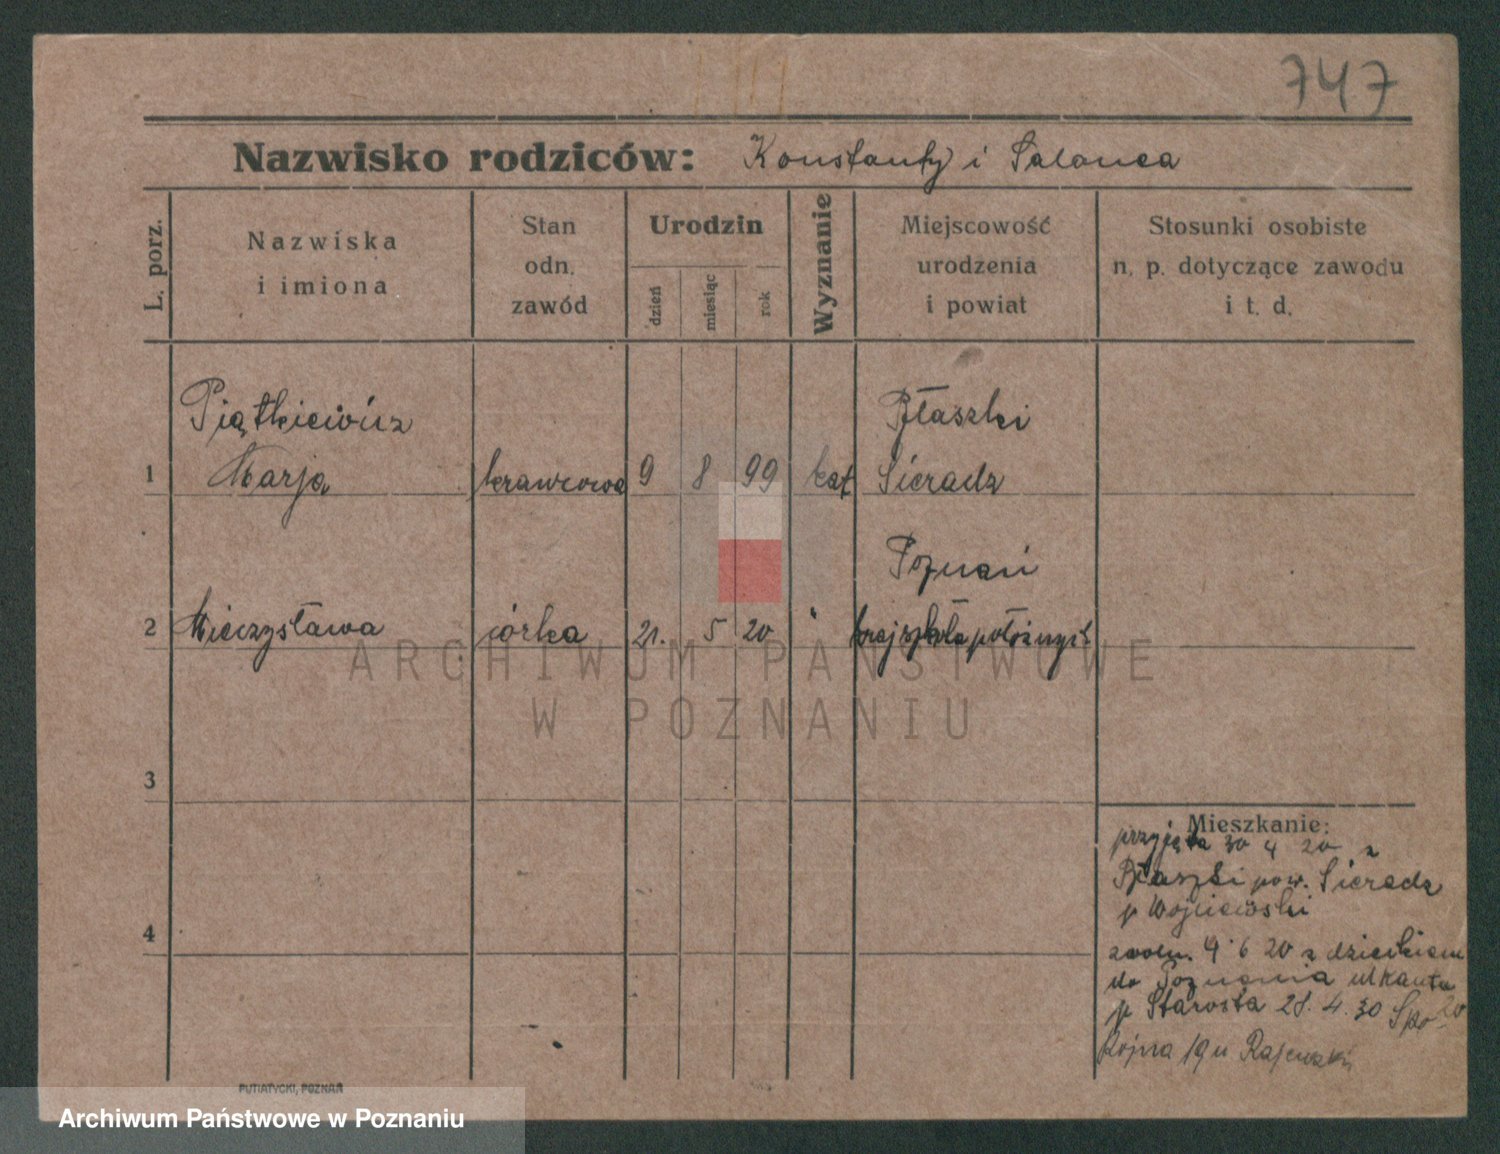 747
Nazwisko rodziców: Konstanty i Salomea
L. porz.
Nazwiska
i imiona
Stan
odn.
zawód
Urodzin
dzień
miesiąc
rok
Wyznanie
Miejscowość
urodzenia
i powiat
Stosunki osobiste
n. p. dotyczące zawodu
i t. d.
Piątkiewicz Błaszki
1 Marja krawcowa 9 8 99 kat Sieradz
Poznań
2 Mieczysława córka 21. 5 20 " kraj szkoła położnych
3
4
Mieszkanie:
przyjęta 30 4 20 z
Błaszki pow. Sieradz
p Wojciewski
zwoln. 9 6 20 z dzieckiem
do Poznania ul Kanta 20
p Starosta 28. 4. 30 Spo
kojna 19 u Rajewski
PUTIATYCKI, POZNAŃ
ARCHIWUM PAŃSTWOWE
W POZNANIU
Archiwum Państwowe w Poznaniu